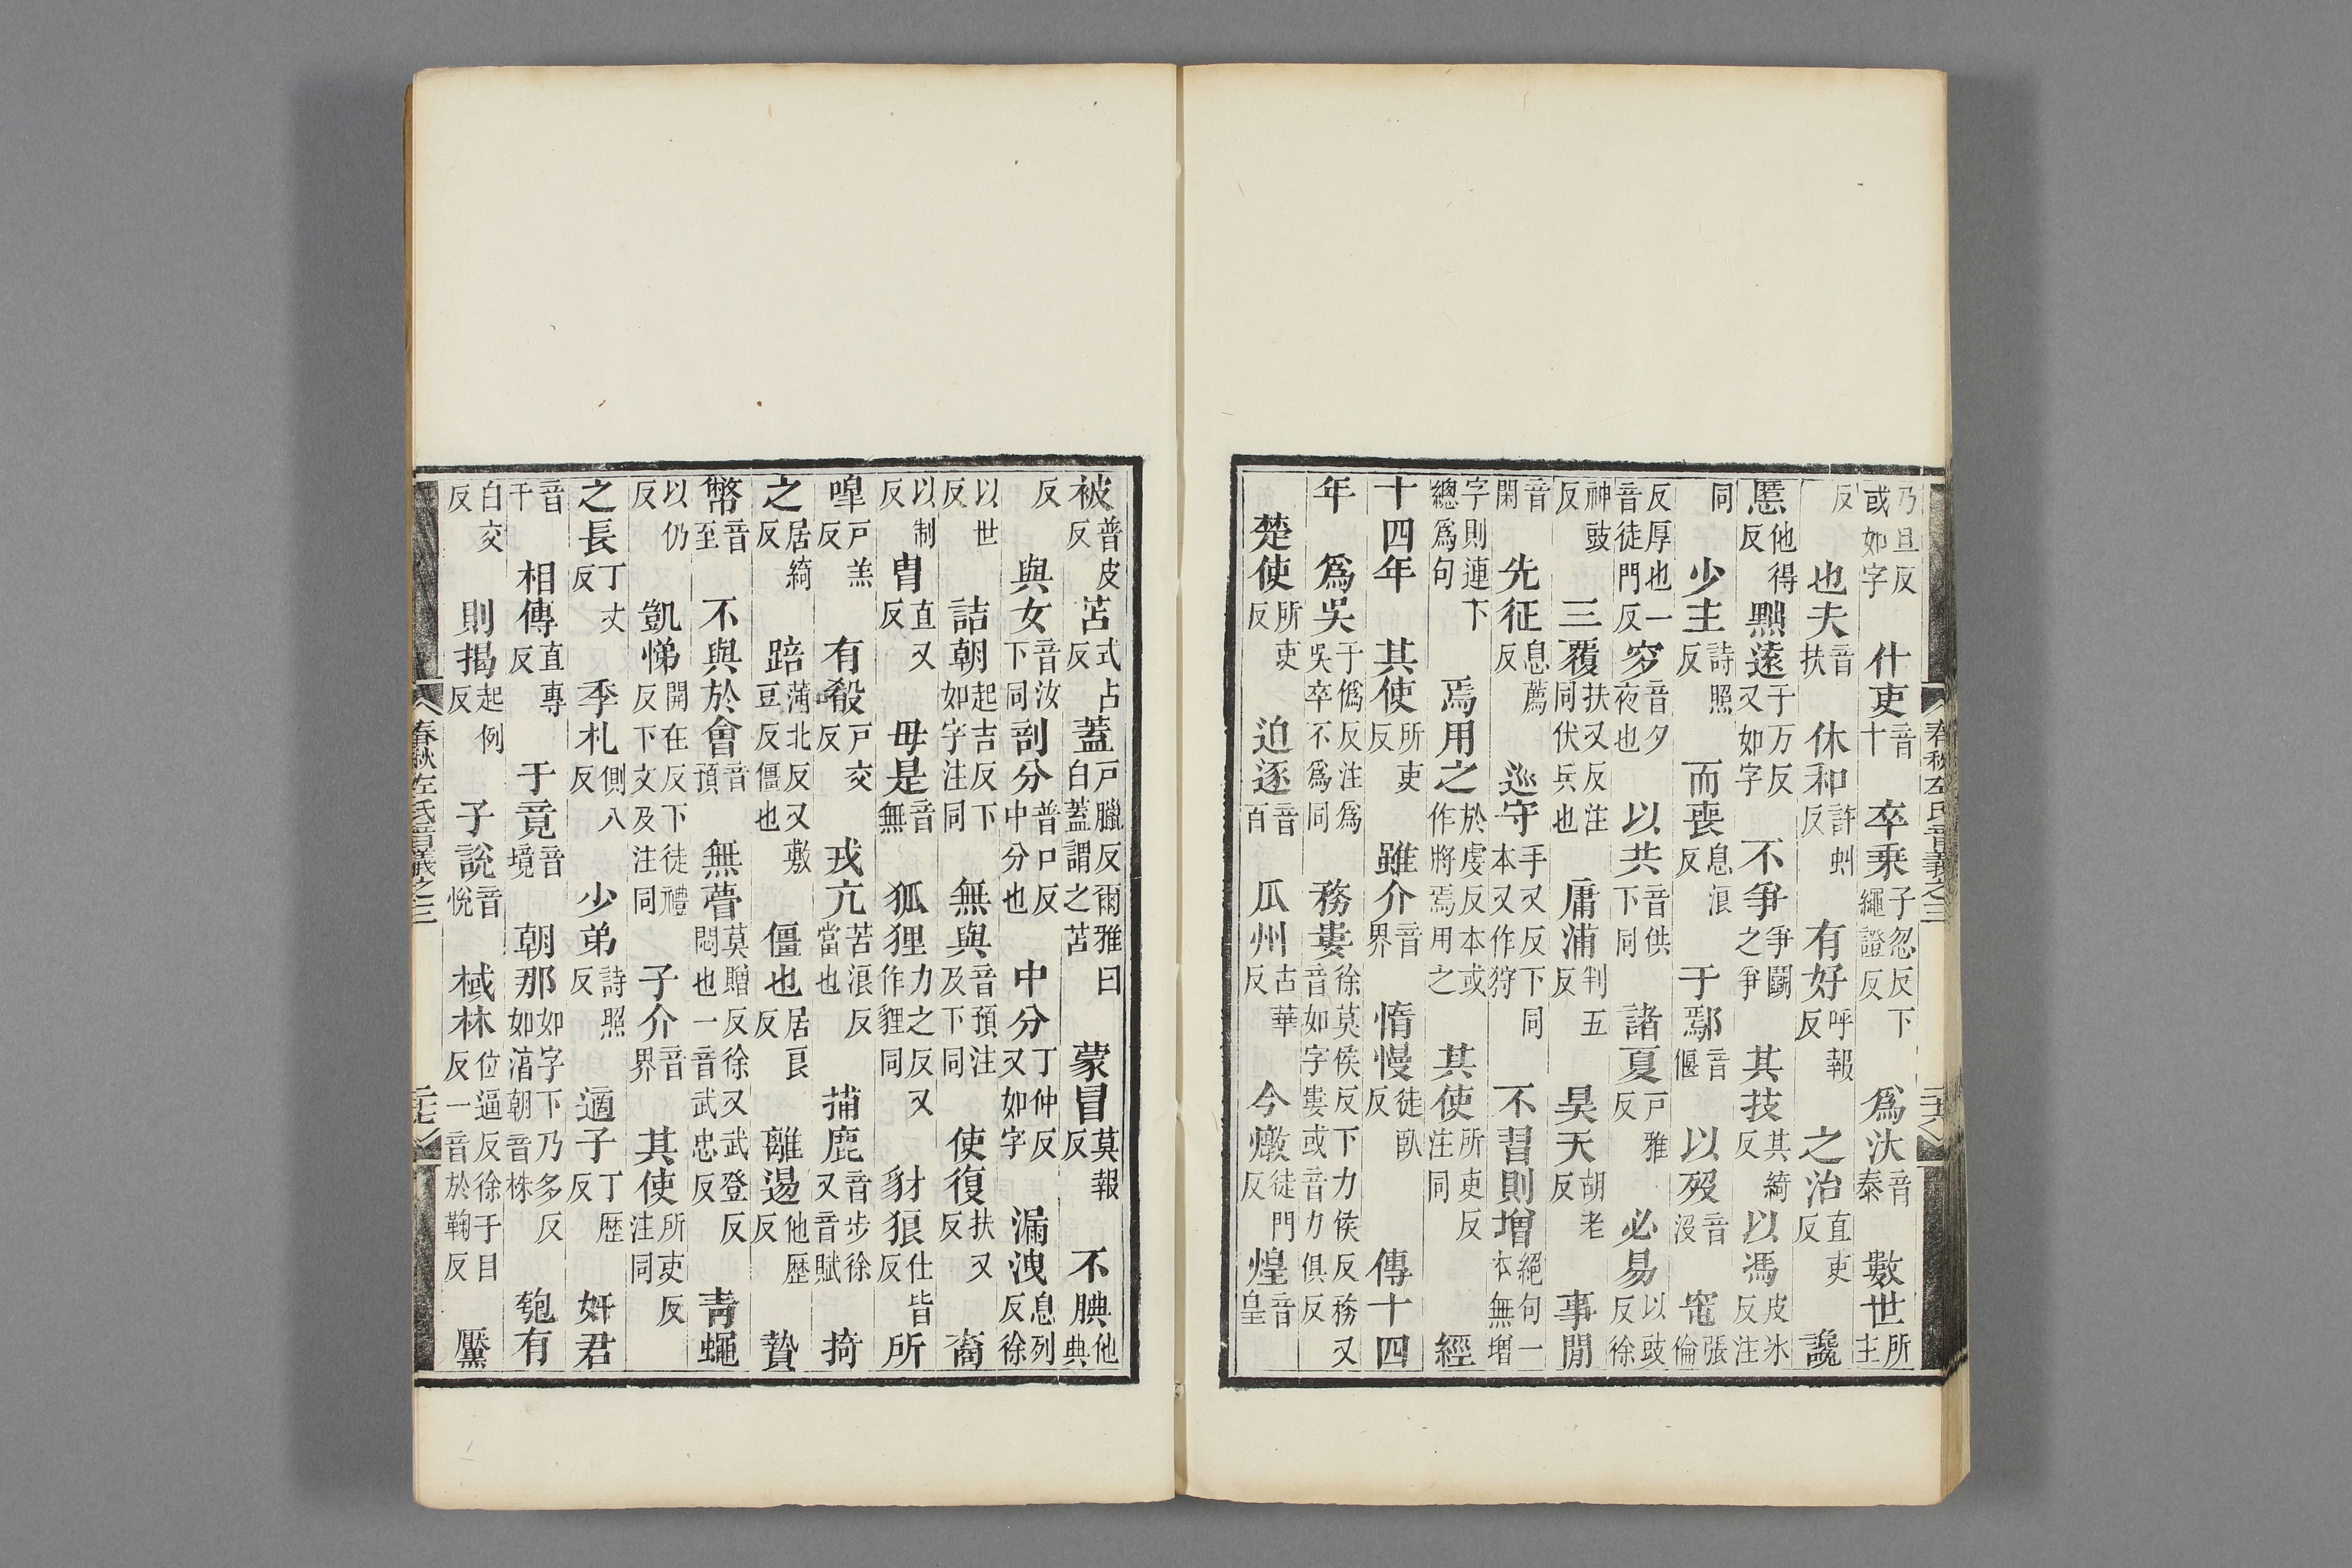 春秋左氏音義之三 二十六
乃旦反或如字 什吏音十 卒乘子忽反下繩證反 爲汏音泰 數世所主
反 也夫音扶 休和許虯反 有好呼報反 之治直吏反 讒
慝他得反 黜遠于万反又如字 不爭爭鬭之爭 其技其綺反 以馮皮氷反注
同 少主詩照反 而喪息浪反 于鄢音偃 以歿音沒 窀張倫
反厚也一音徒門反 穸音夕夜也 以共音供下同 諸夏戶雅反 必易以豉反徐
神豉反 三覆扶又反注同伏兵也 庸浦判五反 昊天胡老反 事閒
音閑 先征息薦反 巡守手又反下同本又作狩 不習則增絕句一本無增
字則連下總爲句 焉用之於虔反本或作將焉用之 其使所吏反注同 經
十四年 其使所吏反 雖介音界 惰慢徒臥反 傳十四
年 爲吳于僞反注爲吳卒不爲同 務婁徐莫侯反下力侯反務又音如字婁或音力俱反
楚使所吏反 迫逐音百 瓜州古華反 今燉徒門反 煌音皇
被普皮反 苫式占反 蓋戶臘反爾雅曰白蓋謂之苫 蒙冒莫報反 不腆他典
反 與女音汝下同 剖分普口反中分也 中分丁仲反又如字 漏洩息列反徐
以世反 詰朝起吉反下如字注同 無與音預注及下同 使復扶又反 裔
以制反 胄直又反 毋是音無 狐狸力之反又作貍同 豺狼仕皆反 所
嘷戶羔反 有殽戶交反 戎亢苦浪反當也 捕鹿音步徐又音賦 掎
之居綺反 踣蒲北反又敷豆反僵也 僵也居良反 離逷他歷反 贄
幣音至 不與於會音預 無瞢莫贈反徐又武登反悶也一音武忠反 青蠅
以仍反 凱悌開在反下徒禮反下文及注同 子介音界 其使所吏反注同
之長丁丈反 季札側八反 少弟詩照反 適子丁歷反 奸君
音干 相傳直專反 于竟音境 朝那如字下乃多反如湻朝音株 匏有
白交反 則揭起例反 子說音悅 棫林位逼反徐于目反一音於鞠反 黶
春秋左氏音義之三 二十七